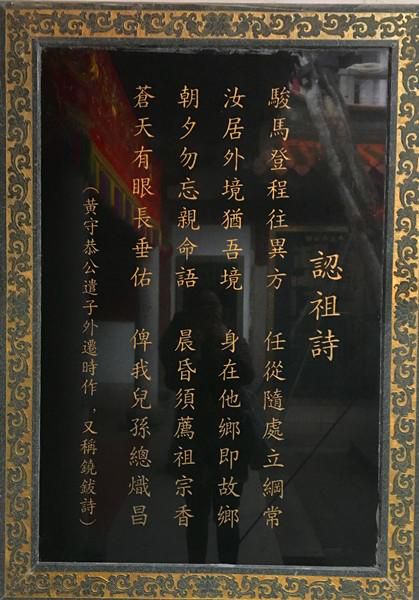 認祖詩
駿馬登程往異方 任從隨處立綱常
汝居外境猶吾境 身在他鄉即故鄉
朝夕勿忘親命語 晨昏須薦祖宗香
蒼天有眼長垂佑 俾我兒孫總熾昌
（黃守恭公遣子外遷時作，又稱鐃鈸詩）